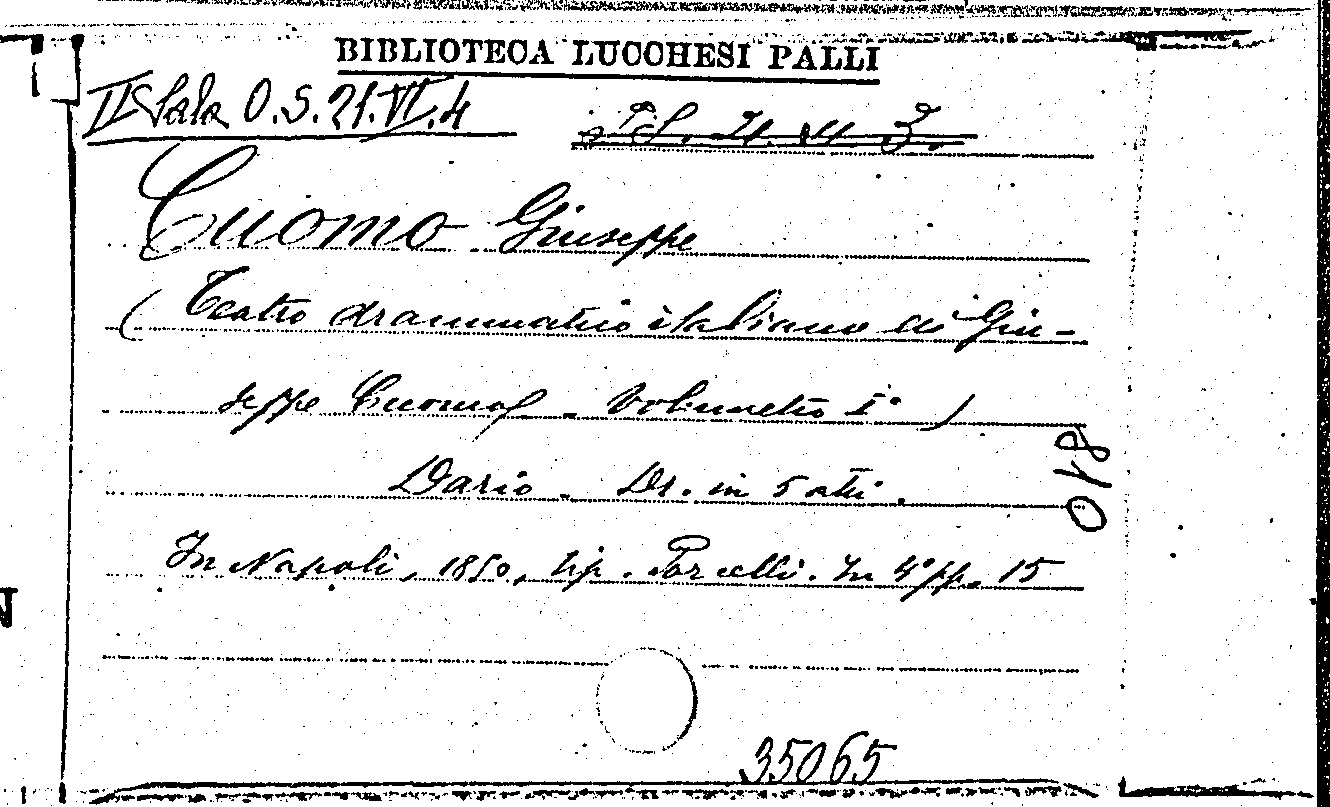 BIBLIOTECA LUCCHESI PALLI
II Sala O.S. 21. VI. 4
Cuomo Giuseppe
( Teatro drammatico italiano di Giu-
seppe Cuomo - Volumetto I° )
Dario - Dr. in 5 atti.
810
In Napoli, 1850, tip. Porcelli. In 4° pp. 15
35065